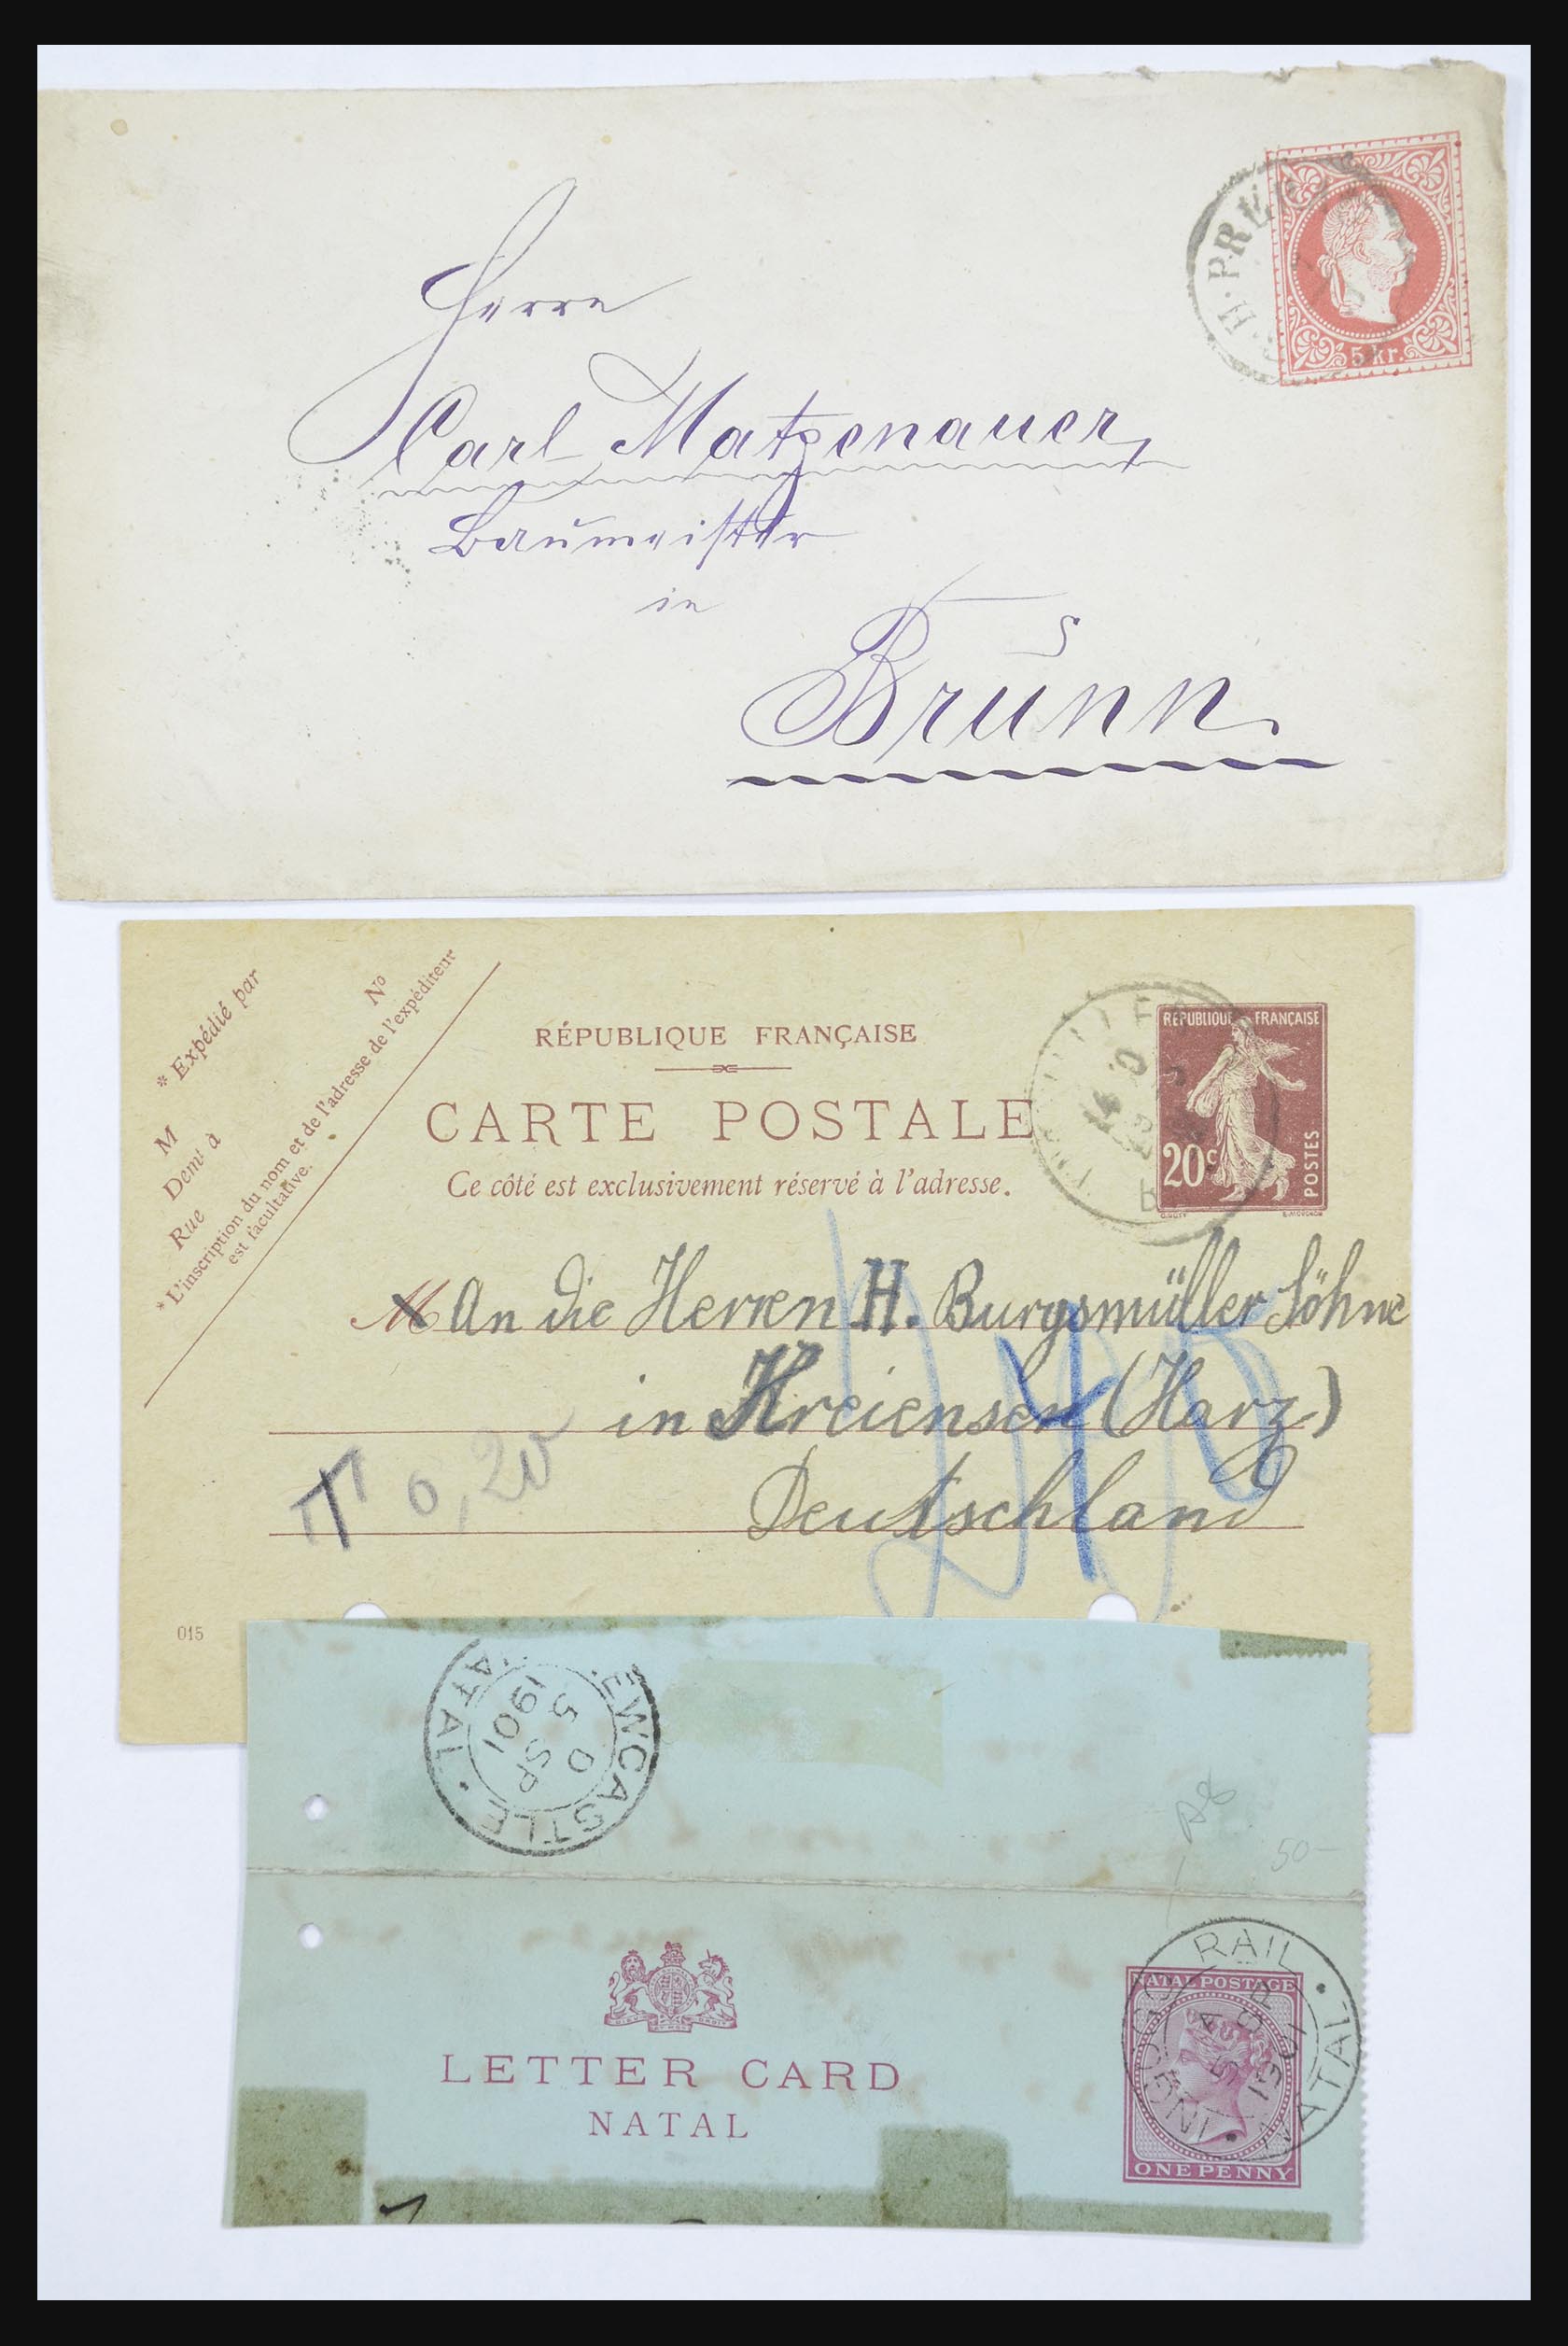 5 kr.
Herrn
Carl Matzenauer,
Baumeister
in
Brünn
* Expédié par
M
Demt à
Rue
No
* L'inscription du nom et de l'adresse de l'expéditeur
est facultative.
RÉPUBLIQUE FRANÇAISE
CARTE POSTALE
Ce côté est exclusivement réservé à l'adresse.
RÉPUBLIQUE FRANÇAISE
20c
POSTES
M An die Herren H. Burgsmüller Söhne
in Kreiensen (Harz)
Deutschland
T 0,20
015
EWCASTLE
ATAL
D
5 SP
1901
50-
LETTER CARD
NATAL
RAIL
NATAL
A
5 SP
1901
NATAL POSTAGE
ONE PENNY